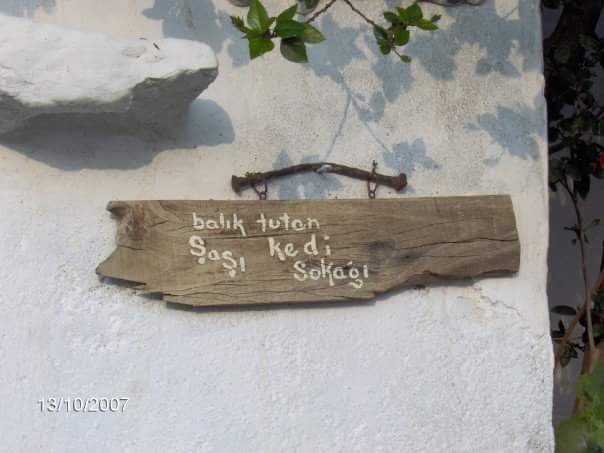 balık tutan
Şaşı kedi
Sokağı
13/10/2007